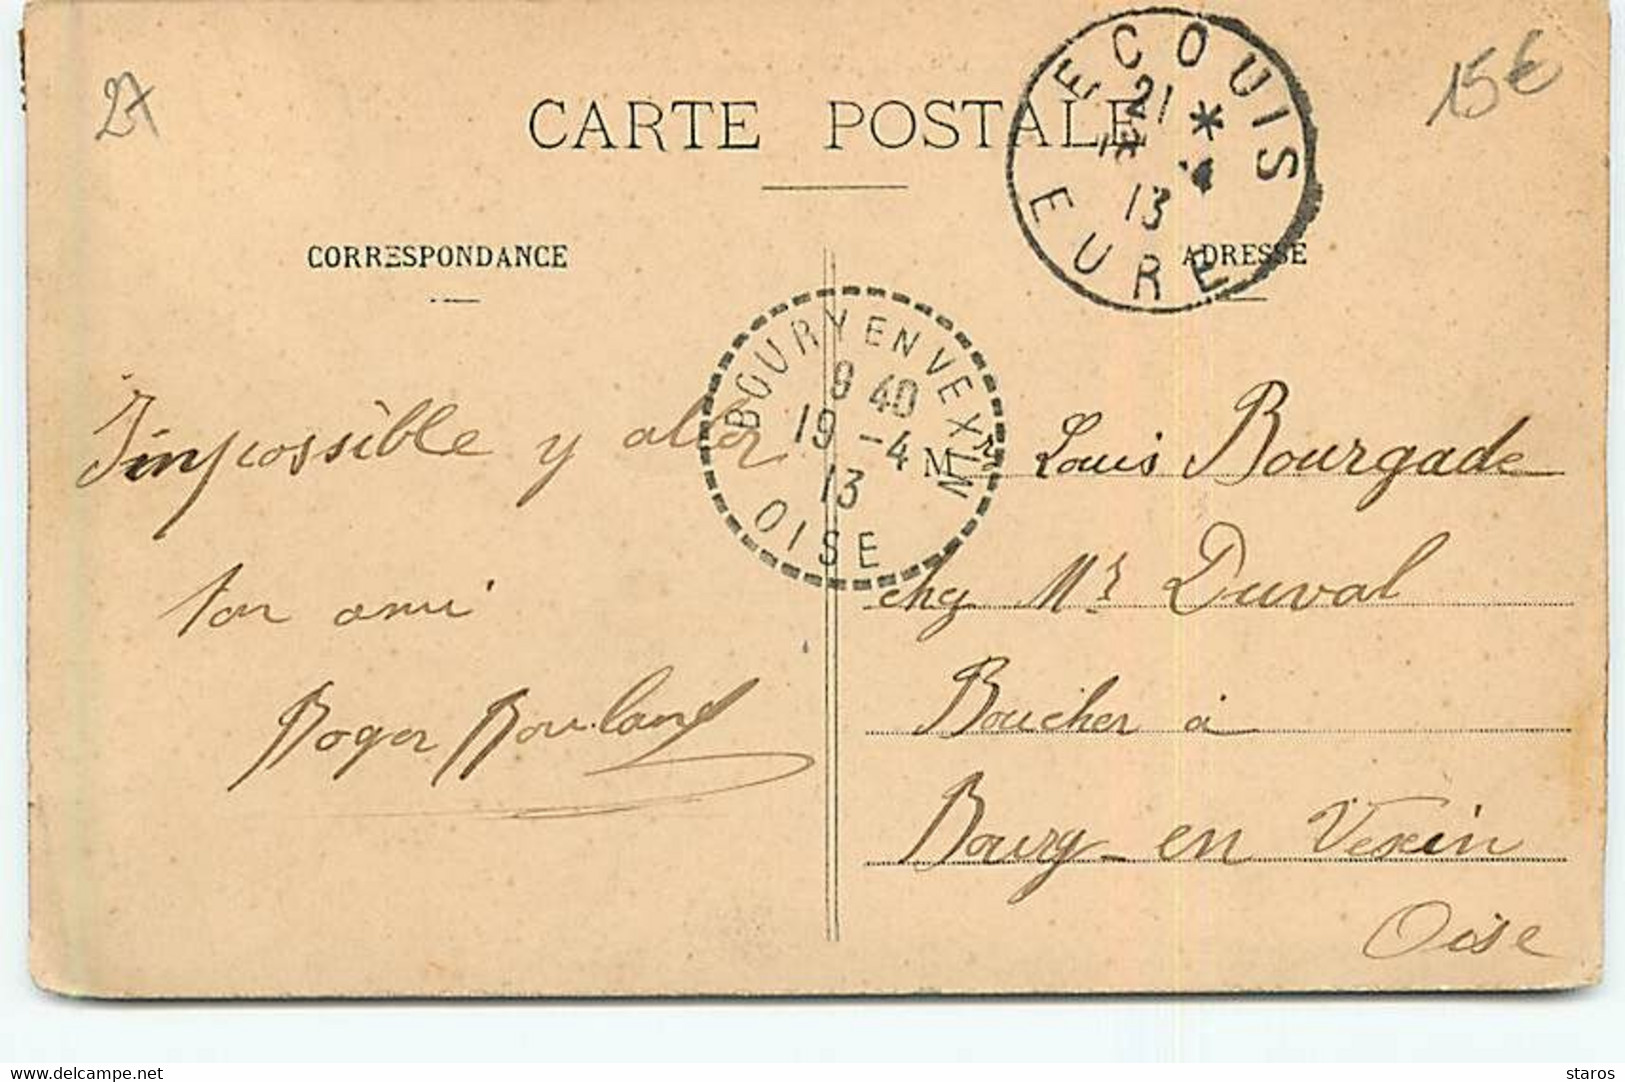 27
15€
CARTE POSTALE
ECOUIS
21
* 4
13
EURE
CORRESPONDANCE
ADRESSE
BOURY EN VEXIN
9 40
19 -4
13
OISE
Impossible y aller
ton ami
Roger Rouland
M r Louis Bourgade
chez Mr Duval
Boucher à
Boury-en Vexin
Oise
delcampe.net
staros